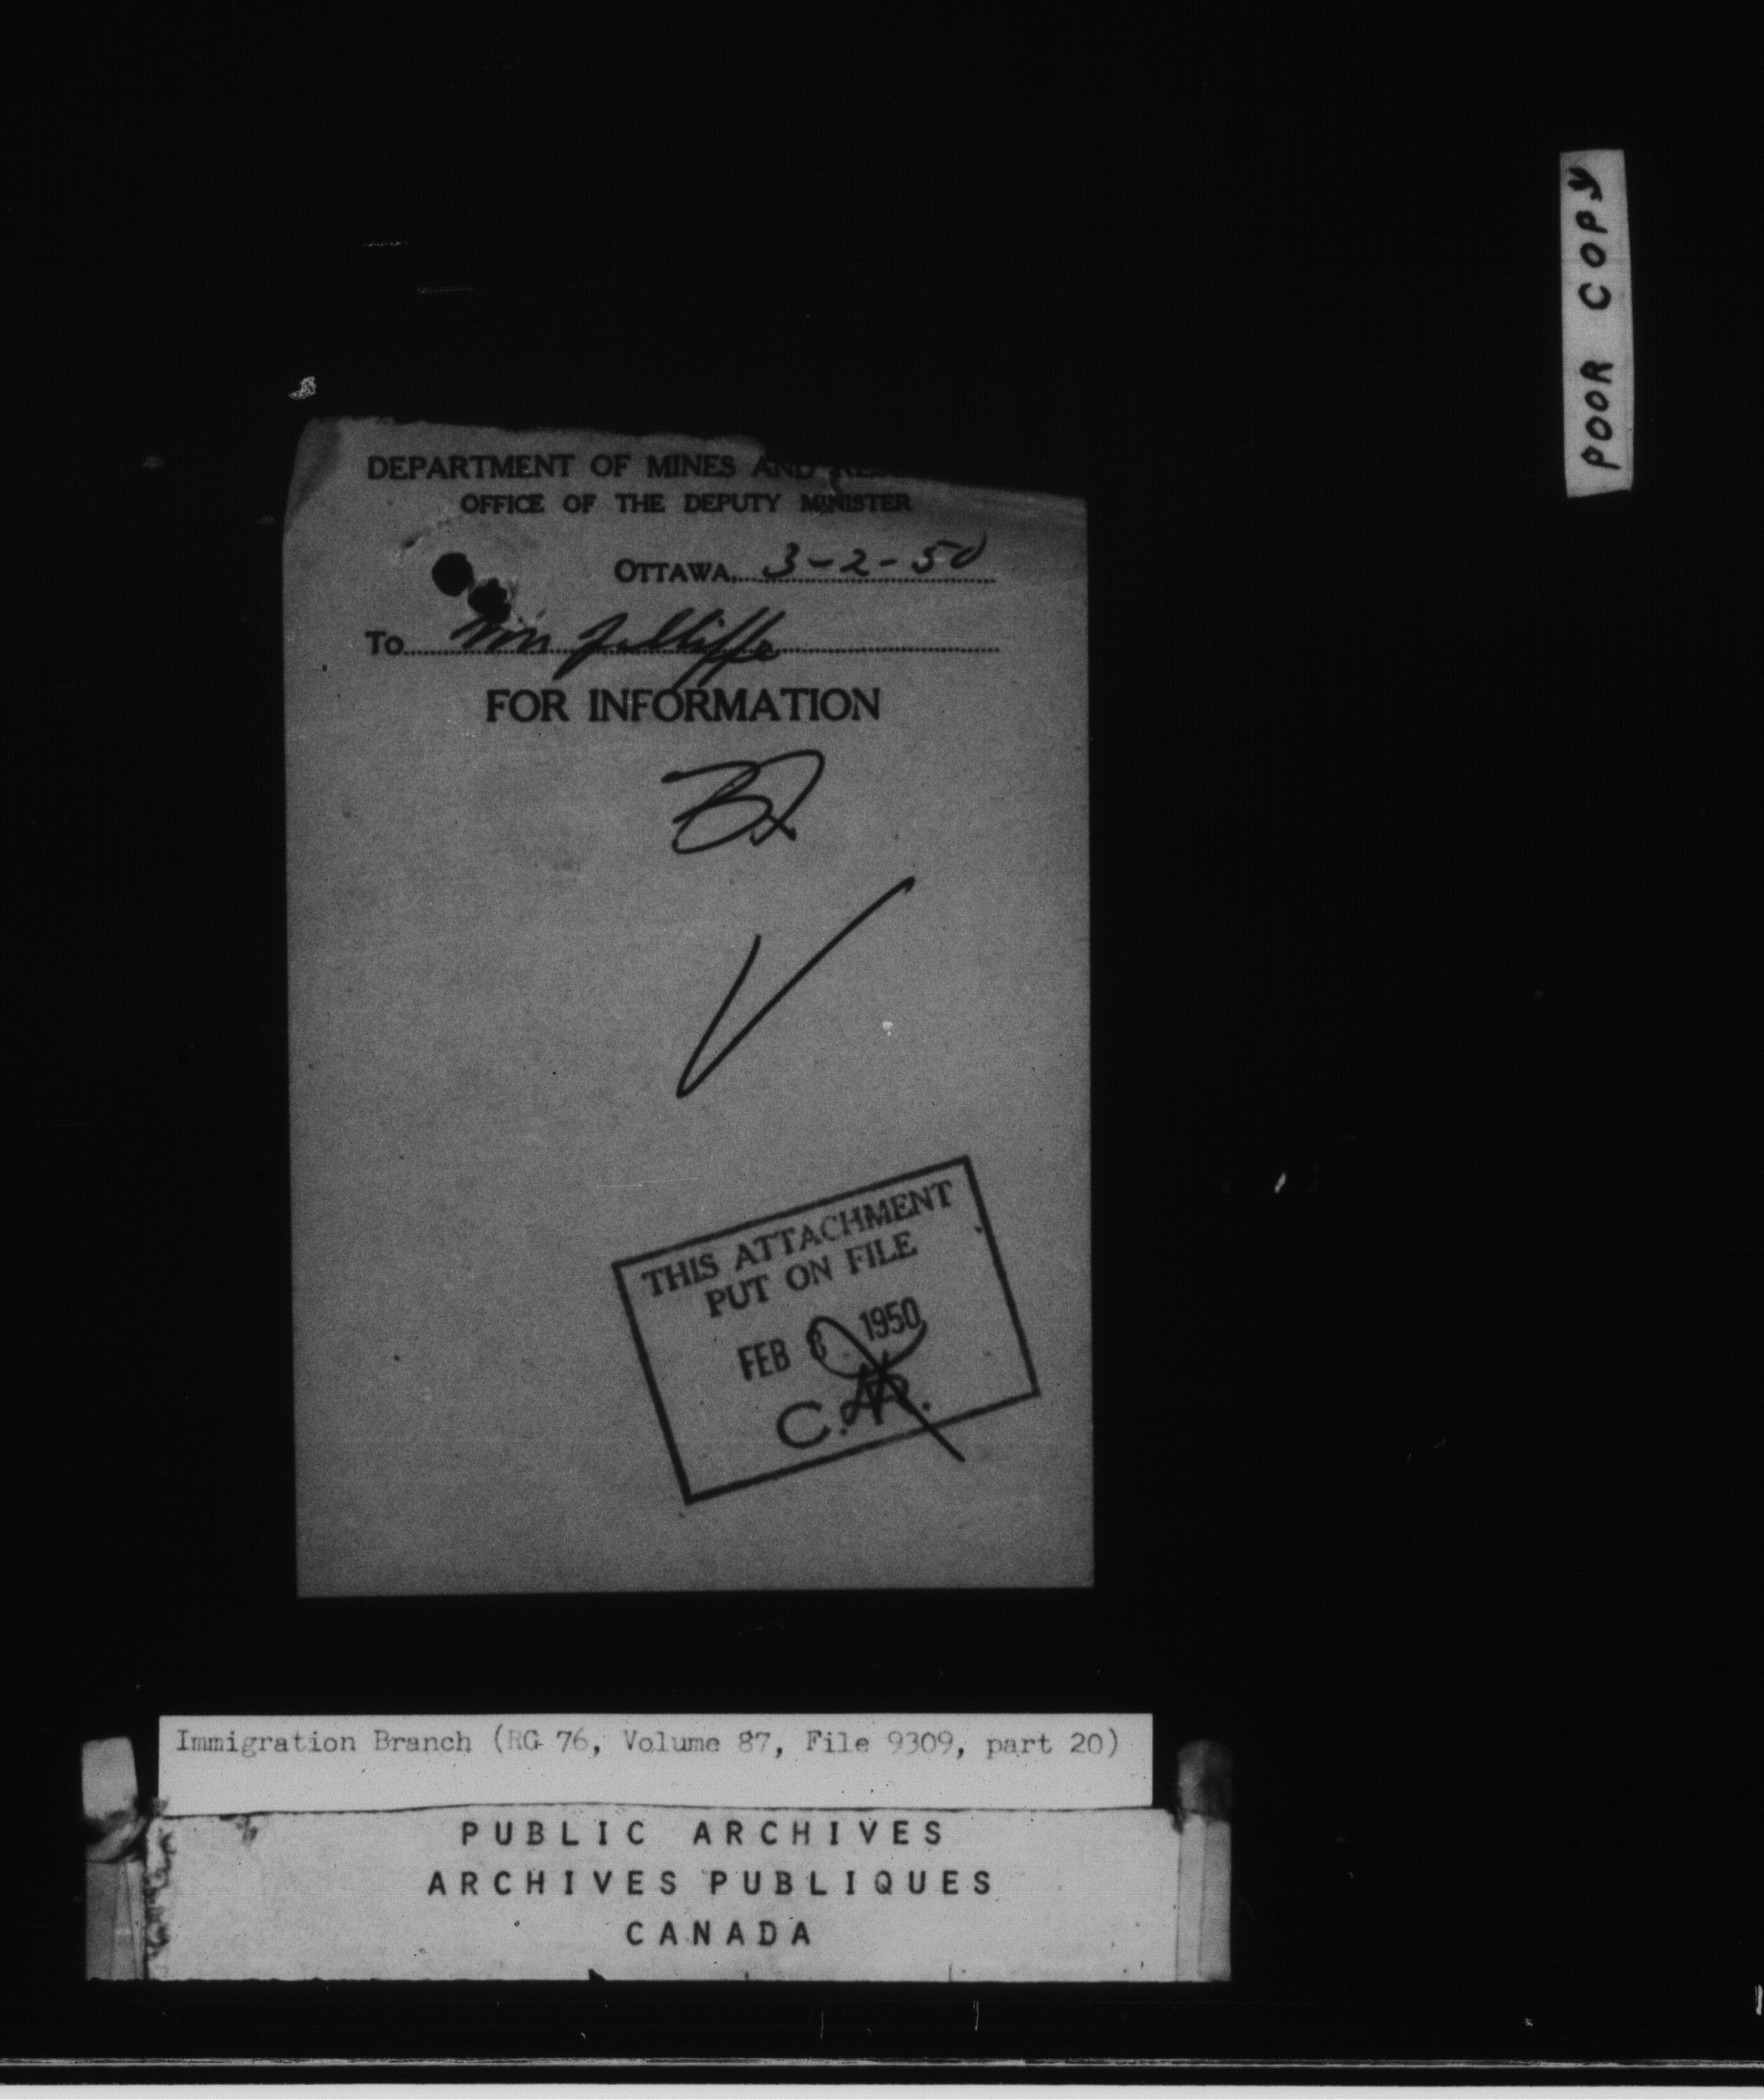 POOR COPY
DEPARTMENT OF MINES AND RES
OFFICE OF THE DEPUTY MINISTER
OTTAWA, 3-2-50
To Mr Jolliffe
FOR INFORMATION
THIS ATTACHMENT
PUT ON FILE
FEB 8 1950
C.R.
Immigration Branch (RG 76, Volume 87, File 9309, part 20)
PUBLIC ARCHIVES
ARCHIVES PUBLIQUES
CANADA